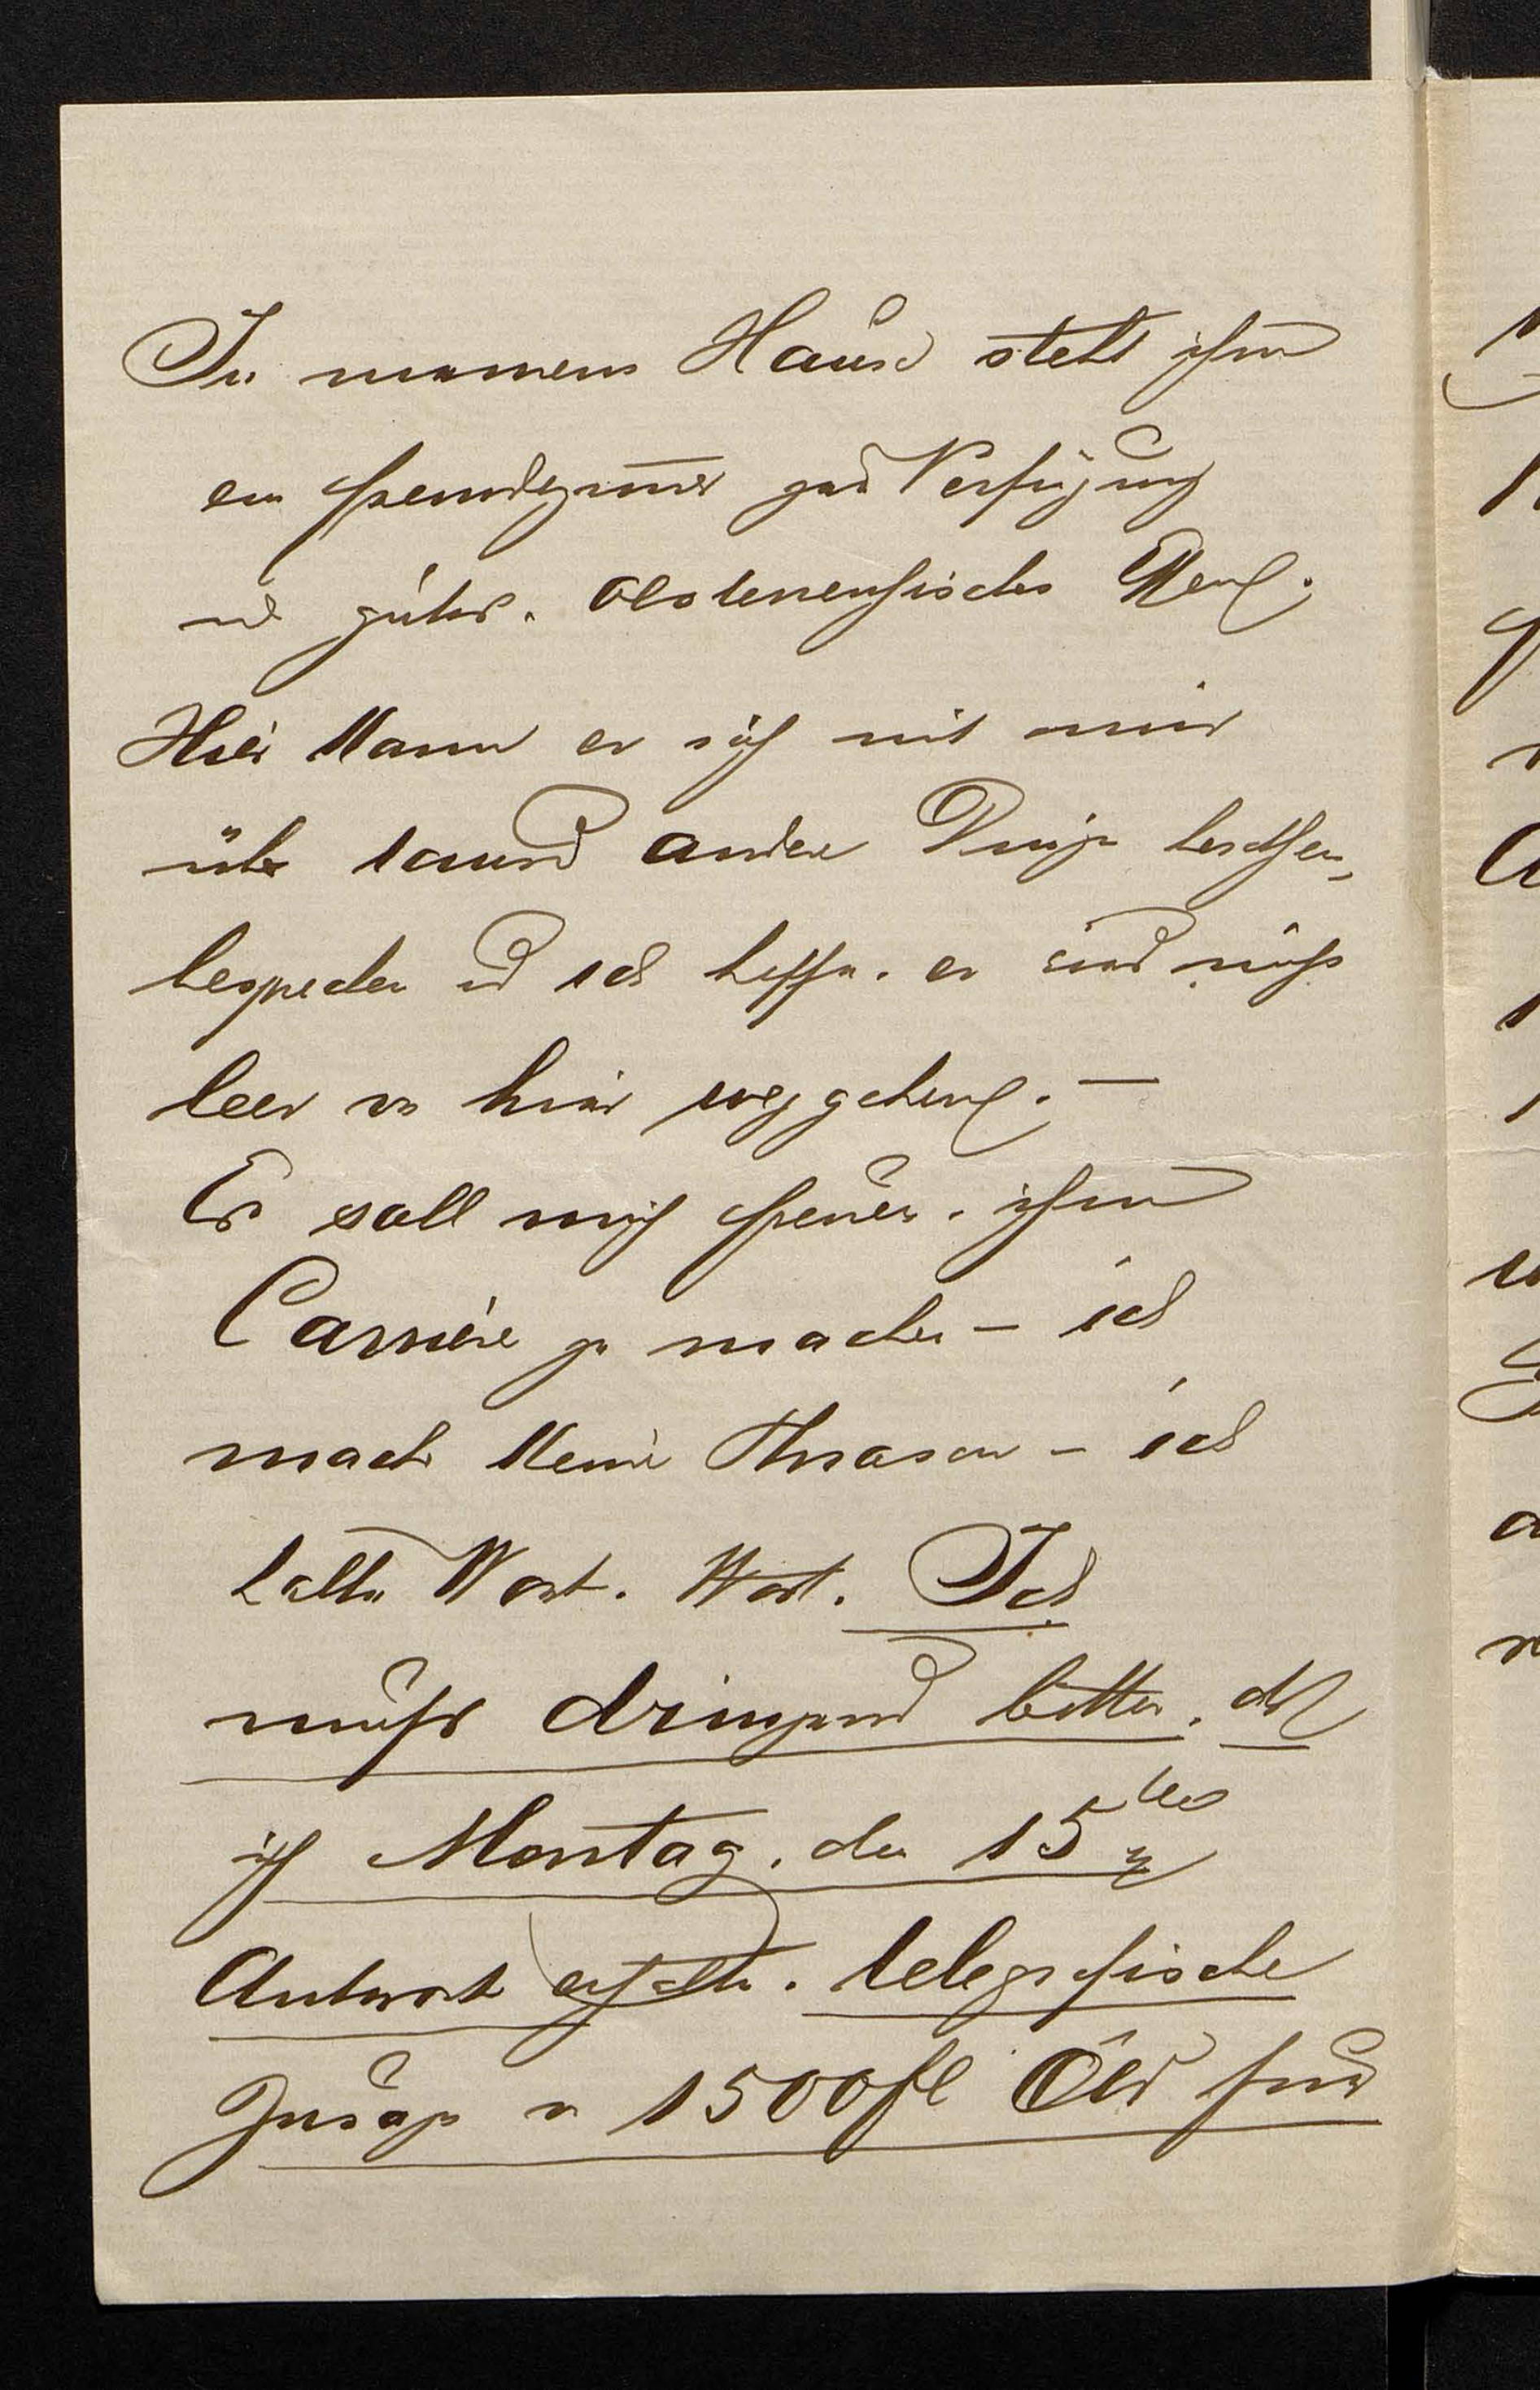 In meinem Hause steht ihm
ein Fremdenzimmer zur Verfügung
und guter, oesterreichischer Wein.
Hier kann er sich mit mir
über tausend andere Dinge berathen,
besprechen und ich hoffe, er wird nicht
leer von hier weggehen. —
Es soll mich freuen, ihm
Carrière zu machen – ich
mache keine Phrasen – ich
halte Wort. Wort. Ich
muß dringend bitten, daß
ich Montag, den 15ten
Antwort erhalte. telegrafische
Zusage von 1500 fl Öst für